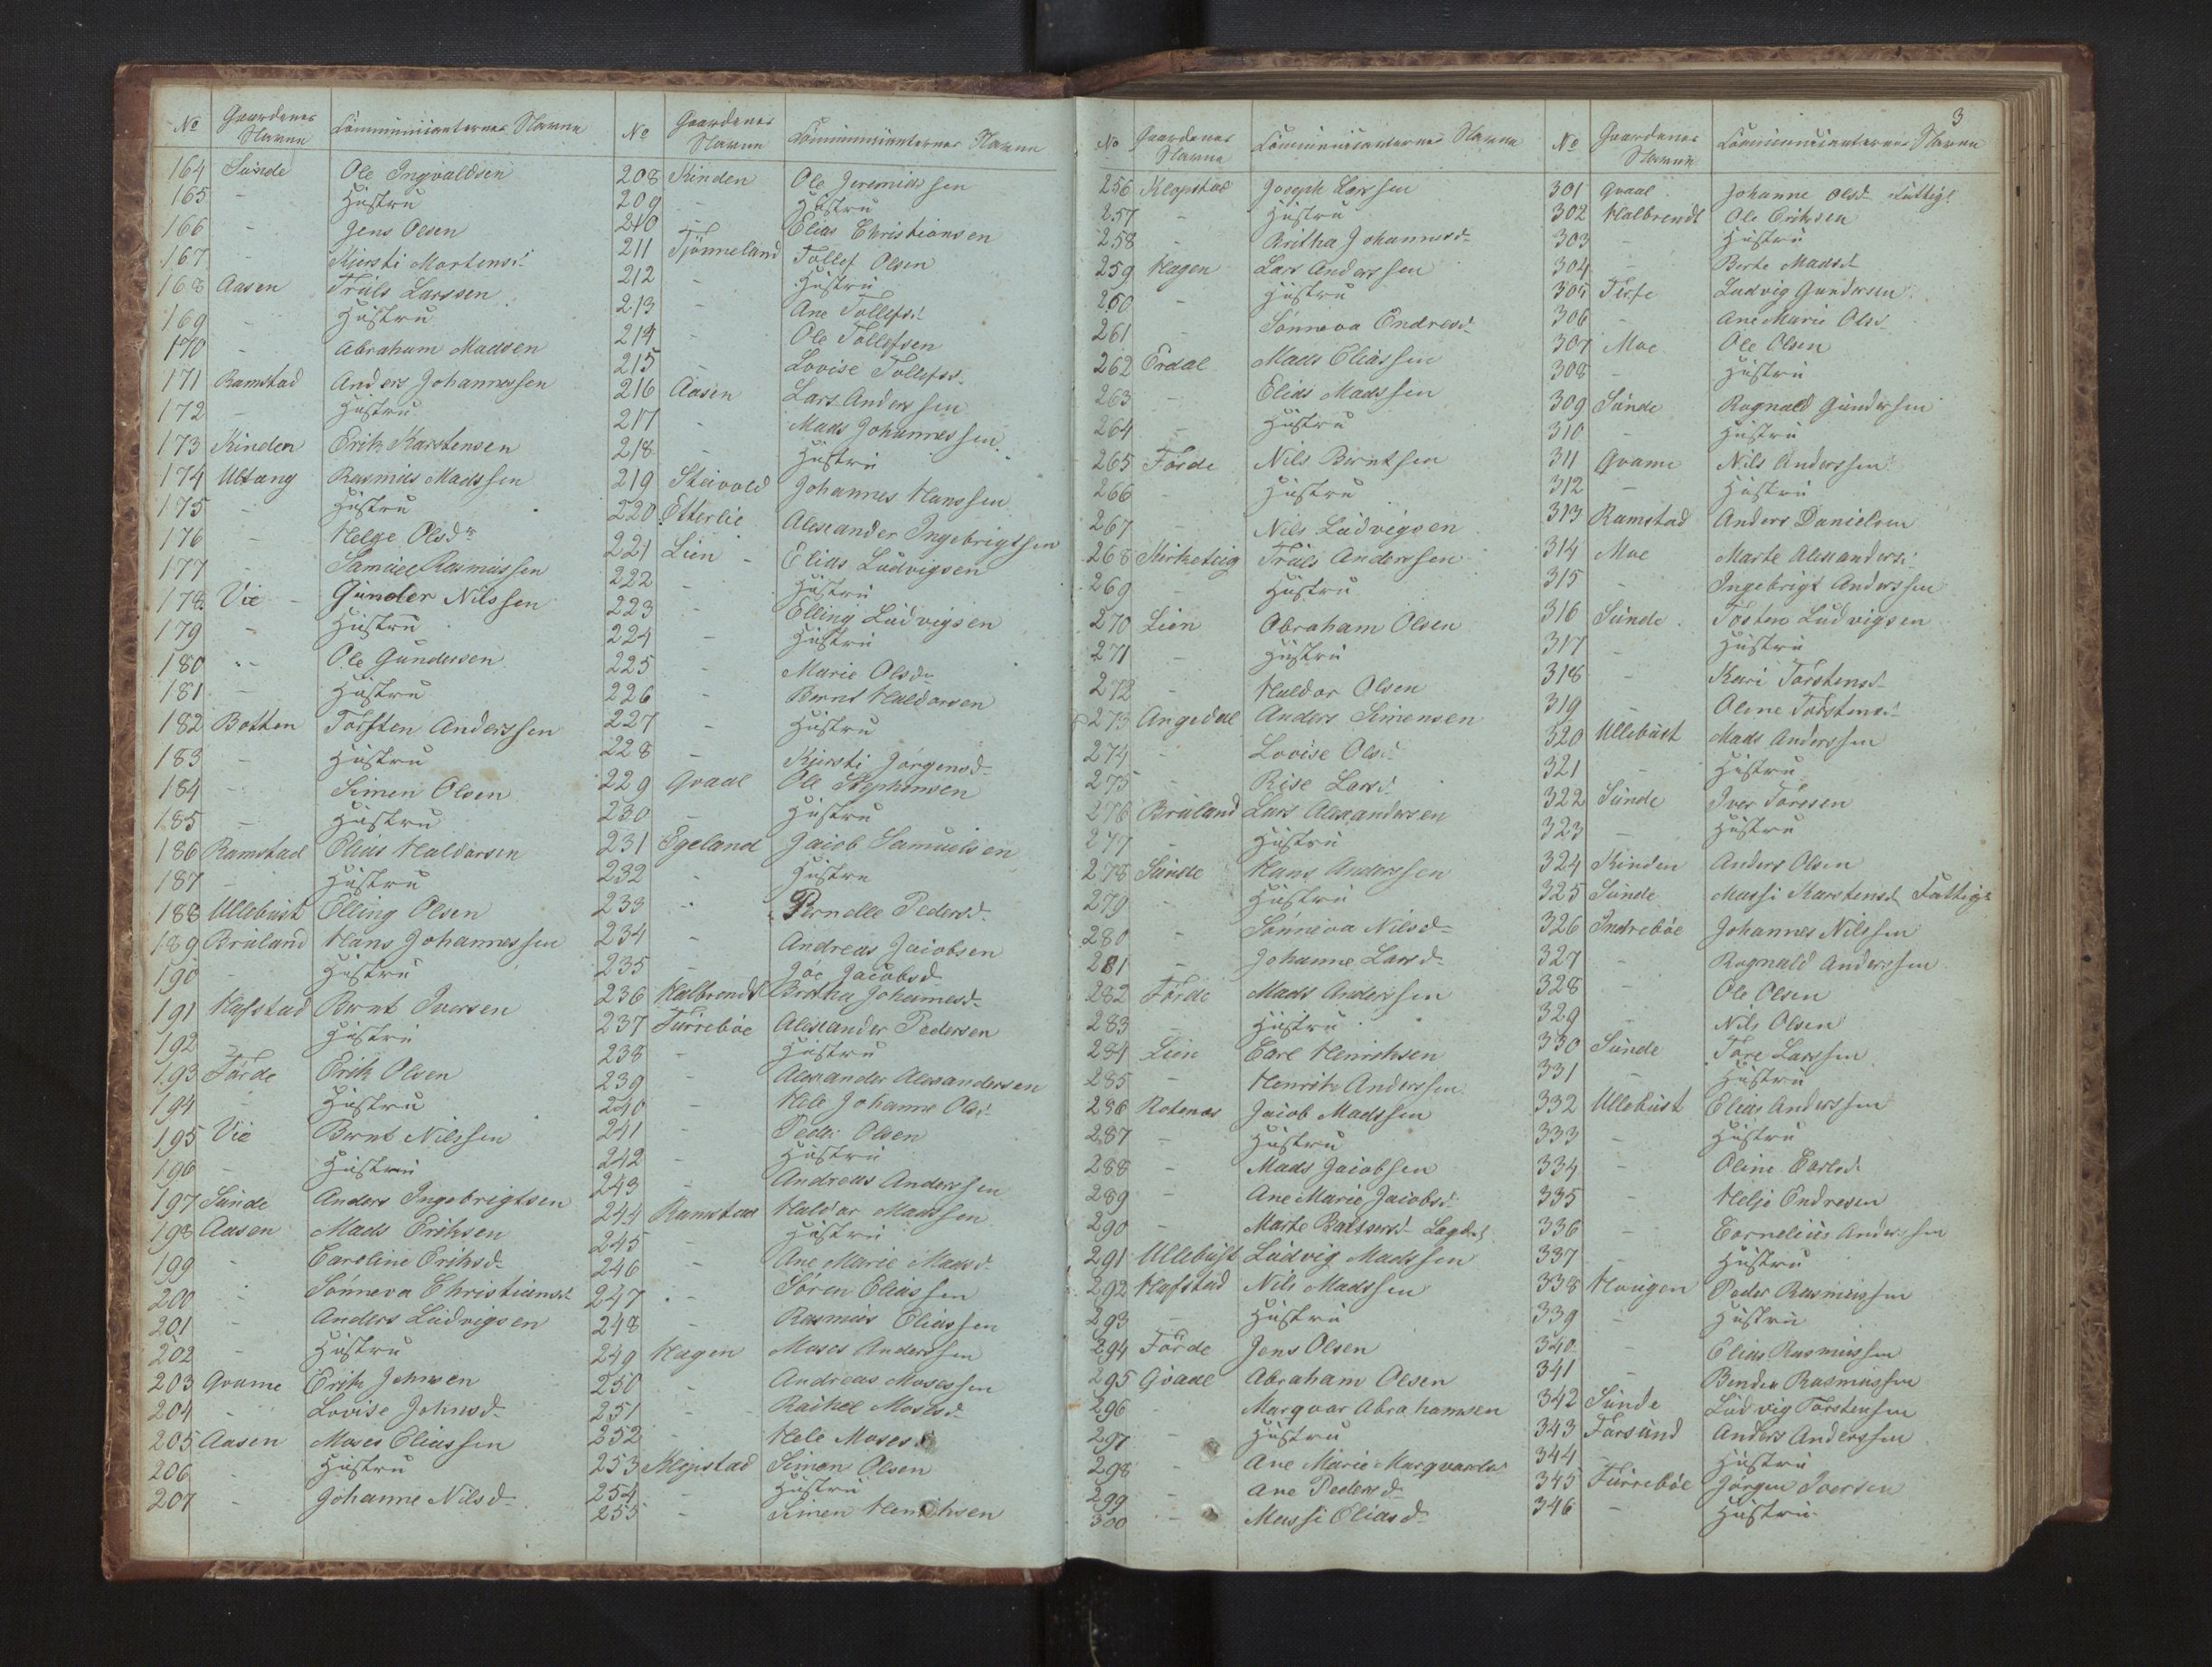 No Gaardenes Navne Communicanternes Navne
164 Sunde Ole Ingvaldsen
165 - Hustru
166 - Jens Olsen
167 - Kjersti Mortensd.
168 Aasen Truls Larssen
169 - Hustru
170 - Abraham Madsen
171 Ramstad Anders Johannessen
172 - Hustru
173 Kinden Erik Karstensen
174 Ultang Rasmus Madssen
175 - Hustru
176 - Helge Olsdr
177 - Samuel Rasmussen
178 Vie - Gunder Nilssen
179 - Hustru
180 - Ole Gundersen
181 - Hustru
182 Botten Torsten Anderssen
183 - Hustru
184 - Simen Olsen
185 - Hustru
186 Ramstad Elias Haldorsen
187 - Hustru
188 Ullebust Elling Olsen
189 Bruland Hans Johannessen
190 - Hustru
191 Hafstad Bernt Iversen
192 - Hustru
193 Førde Erik Olsen
194 - Hustru
195 Vie Bernt Nilssen
196 - Hustru
197 Sunde Anders Ingebrigtsen
198 Aasen Mads Eriksen
199 - Caroline Eriksd.
200 - Sønneva Christiansd.
201 - Anders Ludvigsen
202 - Hustru
203 Qvame Erik Johnsen
204 - Lovise Johnsd.
205 Aasen Moses Eliassen
206 - Hustru
207 - Johanne Nilsd.
No Gaardenes Navne Communicanternes Navne
208 Kinden Ole Jeremiassen
209 - Hustru
210 - Elias Christiansen
211 Tjønneland Tollef Olsen
212 - Hustru
213 - Ane Tollefsd.
214 - Ole Tollefsen
215 - Lovise Tollefsd.
216 Aasen Lars Anderssen
217 - Mads Johannessen
218 - Hustru
219 Steivold Johannes Hanssen
220 Etterlie Alexander Ingebrigtsen
221 Lien - Elias Ludvigsen
222 - Hustru
223 - Elling Ludvigsen
224 - Hustru
225 - Marie Olsdr
226 - Bernt Haldorsen
227 - Hustru
228 - Kjersti Jørgensd.
229 Qvaal Ole Stephensen
230 - Hustru
231 Egeland Jacob Samuelsen
232 - Hustru
233 - Pernelle Pedersd.
234 - Andreas Jacobsen
235 - Jacobsd.
236 Halbrendt Brithe Johannesd.
237 Furrebøe Alexander Pedersen
238 - Hustru
239 - Alexander Alexandersen
240 - Hele Johanne Olsd.
241 - Peder Olsen
242 - Hustru
243 - Andreas Anderssen
244 Ramstad Haldor Madssen
245 - Hustru
246 - Ane Marie Madsd.
247 - Søren Eliassen
248 - Rasmus Eliassen
249 Hagen Moses Anderssen
250 - Andreas Mosessen
251 - Rachel Mosesd.
252 - Hele Mosesd
253 Klopstad Simon Olsen
254 - Hustru
255 - Simen Henriksen
3
No Gaardenes Navne Communicanternes Navne
256 Klopstad Joseph Larssen
257 - Hustru
258 - Brithe Johannesd.
259 Hagen Lars Anderssen
260 - Hustru
261 - Sønneva Endresd.
262 Erdal Mads Eliassen
263 - Elias Madssen
264 - Hustru
265 Førde Nils Berntsen
266 - Hustru
267 - Nils Ludvigsen
268 Kirketeig Truls Anderssen
269 - Hustru
270 Lien Abraham Olsen
271 - Hustru
272 - Haldor Olsen
273 Angedal Anders Simensen
274 - Lovise Olsd.
275 - Rise Larsd.
276 Bruland Lars Alexandersen
277 - Hustru
278 Sunde Hans Anderssen
279 - Hustru
280 - Sønneva Nilsd.
281 - Johanne Larsd.
282 Førde Mads Anderssen
283 - Hustru
284 Lien Carl Henriksen
285 - Henrik Anderssen
286 Rotenes Jacob Madssen
287 - Hustru
288 - Mads Jacobsen
289 - Ane Marie Jacobsd.
290 - Marte Lægds
291 Ullebust Ludvig Madssen
292 Hafstad Nils Madssen
293 - Hustru
294 Førde Jens Olsen
295 Qvaal Abraham Olsen
296 - Marqvar Abrahamsen
297 - Hustru
298 - Ane Marie Marqvardsd
299 - Ane Pedersd.
300 - Massi Eliasd.
No Gaardenes Navne Communicanternes Navne
301 Qvaal Johanne Olsd. Fattigl
302 Halbrendt Ole Eriksen
303 - Hustru
304 - Berte Madsd.
305 Ludvig Gundersen
306 - Ane Marie Olsd.
307 Moe Ole Olsen
308 - Hustru
309 Sunde Rognald Gundersen
310 - Hustru
311 Qvame Nils Anderssen
312 - Hustru
313 Ramstad Anders Danielsen
314 Moe Marte Alexandersd.
315 - Ingebrigt Anderssen
316 Sunde Tosten Ludvigsen
317 - Hustru
318 - Kari Torstensd.
319 - Oline Torstensd.
320 Ullebust Mads Anderssen
321 - Hustru
322 Sunde Iver Toresen
323 - Hustru
324 Kinden Anders Olsen
325 Sunde Massi Karstensd. Fattigl
326 Indrebøe Johannes Nilssen
327 - Rognald Anderssen
328 - Ole Olsen
329 - Nils Olsen
330 Sunde Tore Larssen
331 - Hustru
332 Ullebust Elias Anderssen
333 - Hustru
334 - Oline Carlsd.
335 - Helje Endresen
336 - Cornelius Anderssen
337 - Hustru
338 Hougen Peder Rasmussen
339 - Hustru
340 - Elias Rasmussen
341 - Rasmussen
342 Sunde Ludvig Torstensen
343 Farsund Anders Anderssen
344 - Hustru
345 Furrebøe Jørgen Iversen
346 - Hustru